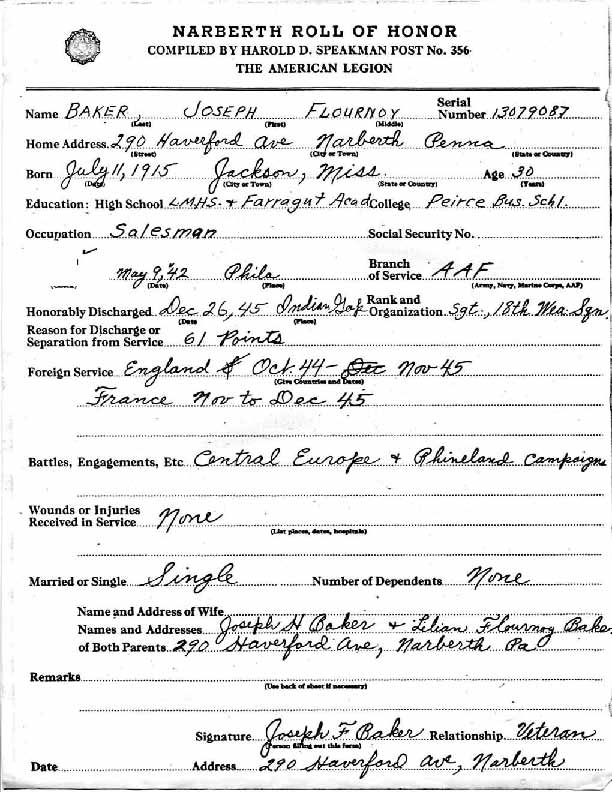 NARBERTH ROLL OF HONOR
COMPILED BY HAROLD D. SPEAKMAN POST No. 356
THE AMERICAN LEGION
Name BAKER, JOSEPH FLOURNOY Serial Number 13079087
(Last) (First) (Middle)
Home Address 290 Haverford Ave Narberth Penna
(Street) (City or Town) (State or Country)
Born July 11, 1915 Jackson, Miss. Age 30
(Date) (City or Town) (State or Country) (Years)
Education: High School L.M.H.S. & Farragut Acad College Peirce Bus. Schl.
Occupation Salesman Social Security No.
May 9, '42 Phila Branch of Service AAF
(Date) (Place) (Army, Navy, Marine Corps, AAF)
Honorably Discharged Dec 26, 45 Indian Gap Rank and Organization Sgt., 18th Wea Sqn
(Date (Place)
Reason for Discharge or
Separation from Service 61 Points
Foreign Service England Oct 44 - Dec Nov 45
(Give Countries and Dates)
France Nov to Dec 45
Battles, Engagements, Etc Central Europe & Rhineland Campaigns
Wounds or Injuries
Received in Service None
(List places, dates, hospitals)
Married or Single Single Number of Dependents None
Name and Address of Wife
Names and Addresses Joseph H Baker & Lilian Flournoy Bake
of Both Parents 290 Haverford Ave, Narberth Pa
Remarks
(Use back of sheet if necessary)
Signature Joseph F Baker Relationship Veteran
(Person filling out this form)
Date Address 290 Haverford Ave, Narberth